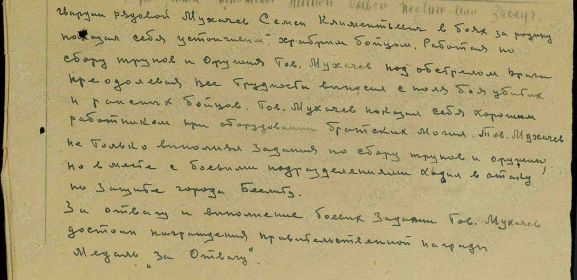 личного боевого подвига или заслуг.
гвардии рядовой Мухачев Семен Климентьевич в боях за родину
показал себя устойчивым, храбрым бойцом. Работая по
сбору трупов и оружия Тов. Мухачев под обстрелом врага
преодолевая все трудности выносил с поля боя убитых
и раненых бойцов. Тов. Мухачев показал себя хорошим
работником при оборудовании братских могил. Тов. Мухачев
не только выполнял задания по сбору трупов и оружия
но вместе с боевыми подразделениями ходил в атаку
по защите города
За отвагу и выполнение боевых задании Тов. Мухачев
достоин награждения правительственной награды
Медаль "За Отвагу".